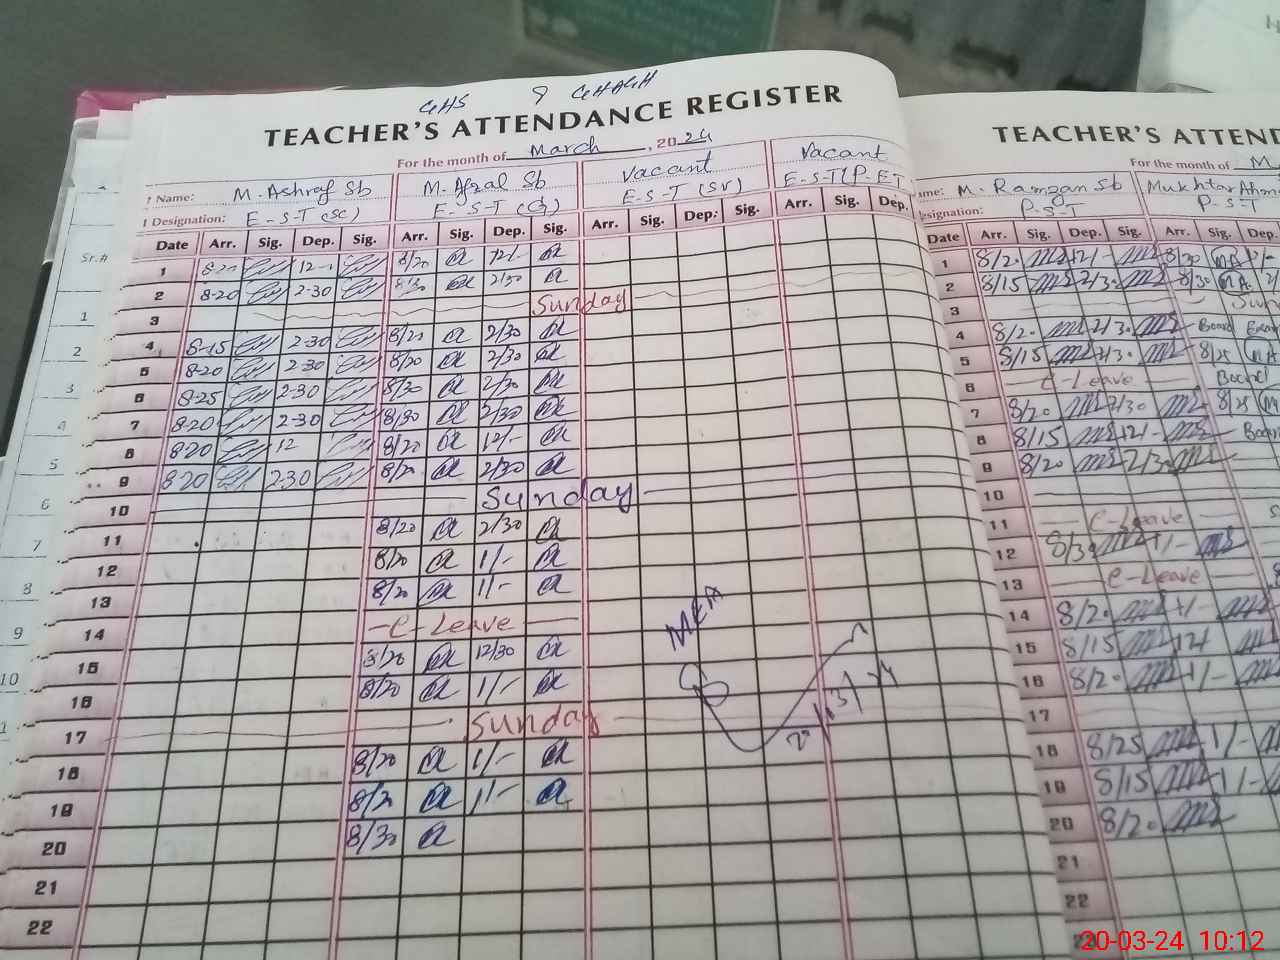 GHS 9 GHAGH
TEACHER'S ATTENDANCE REGISTER
For the month of March, 2024
Name: M. Ashraf Sb M. Afzal Sb Vacant Vacant
Designation: E-S-T (SC) E-S-T (G) E-S-T (SV) E-S-T (P-E T
Date Arr. Sig. Dep. Sig. Arr. Sig. Dep. Sig. Arr. Sig. Dep: Sig. Arr. Sig. Dep.
1 8-20 12- 8/20 12/-
2 8-20 2-30 8/30 2/30
3 Sunday
4 8-15 2-30 8/20 2/30
5 8-20 2-30 8/20 2/30
6 8-25 2-30 8/20 2/30
7 8-20 2-30 8/30 2/30
8 8-20 12 8/20 12/-
9 8-20 2-30 8/20 2/30
10 Sunday
11 8/20 2/30
12 8/20 1/-
13 8/20 1/-
14 C-Leave
15 8/20 12/30
16 8/20 1/-
17 Sunday
18 8/20 1/-
19 8/20 1/-
20 8/30
21
22
MEA
Sr.#
1
2
3
4
5
6
7
8
9
10
TEACHER'S ATTEND
For the month of M
ame: M. Ramzan Sb Mukhtar Ahm
esignation: P-S-T P-S-T
Date Arr. Sig. Dep. Sig. Arr. Sig. Dep.
1 8/20 12/- 8/30 MA
2 8/15 2/30 8/30 MA
3
4 8/20 2/30 Board
5 8/15 2/30 8/25
6 C-Leave Board
7 8/20 2/30 8/25
8 8/15 12/- Board
9 8/20 2/30
10
11 C-Leave
12 8/30 1/-
13 C-Leave
14 8/20 1/-
15 8/15 12/
16 8/20 1/-
17
18 8/25 1/-
19 8/15 1/-
20 8/20
21
22
20-03-24 10:12